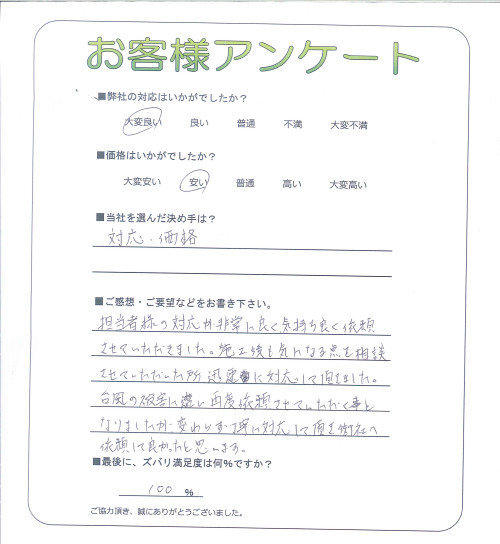 お客様アンケート
■弊社の対応はいかがでしたか？
大変良い 良い 普通 不満 大変不満
■価格はいかがでしたか？
大変安い 安い 普通 高い 大変高い
■当社を選んだ決め手は？
対応・価格
■ご感想・ご要望などをお書き下さい。
担当者様の対応が非常に良く気持ち良く依頼
させていただきました。施工後も気になる点を相談
させていただいた所迅速に対応して頂きました。
台風の被害に遭い再度依頼させていただく事と
なりましたが、変わらず丁寧に対応して頂き御社へ
依頼して良かったと思います。
■最後に、ズバリ満足度は何％ですか？
100 %
ご協力頂き、誠にありがとうございました。